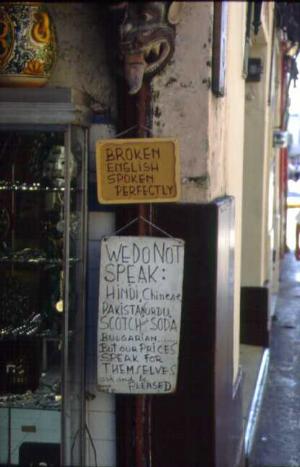 BROKEN
ENGLISH
SPOKEN
PERFECTLY
WE DO NOT
SPEAK:
HINDI, Chinese
PAKISTAN URDU
SCOTCH AND SODA
BULGARIAN.....
But OUR PRICES
SPEAK FOR
THEMSELVES
ask and be
PLEASED